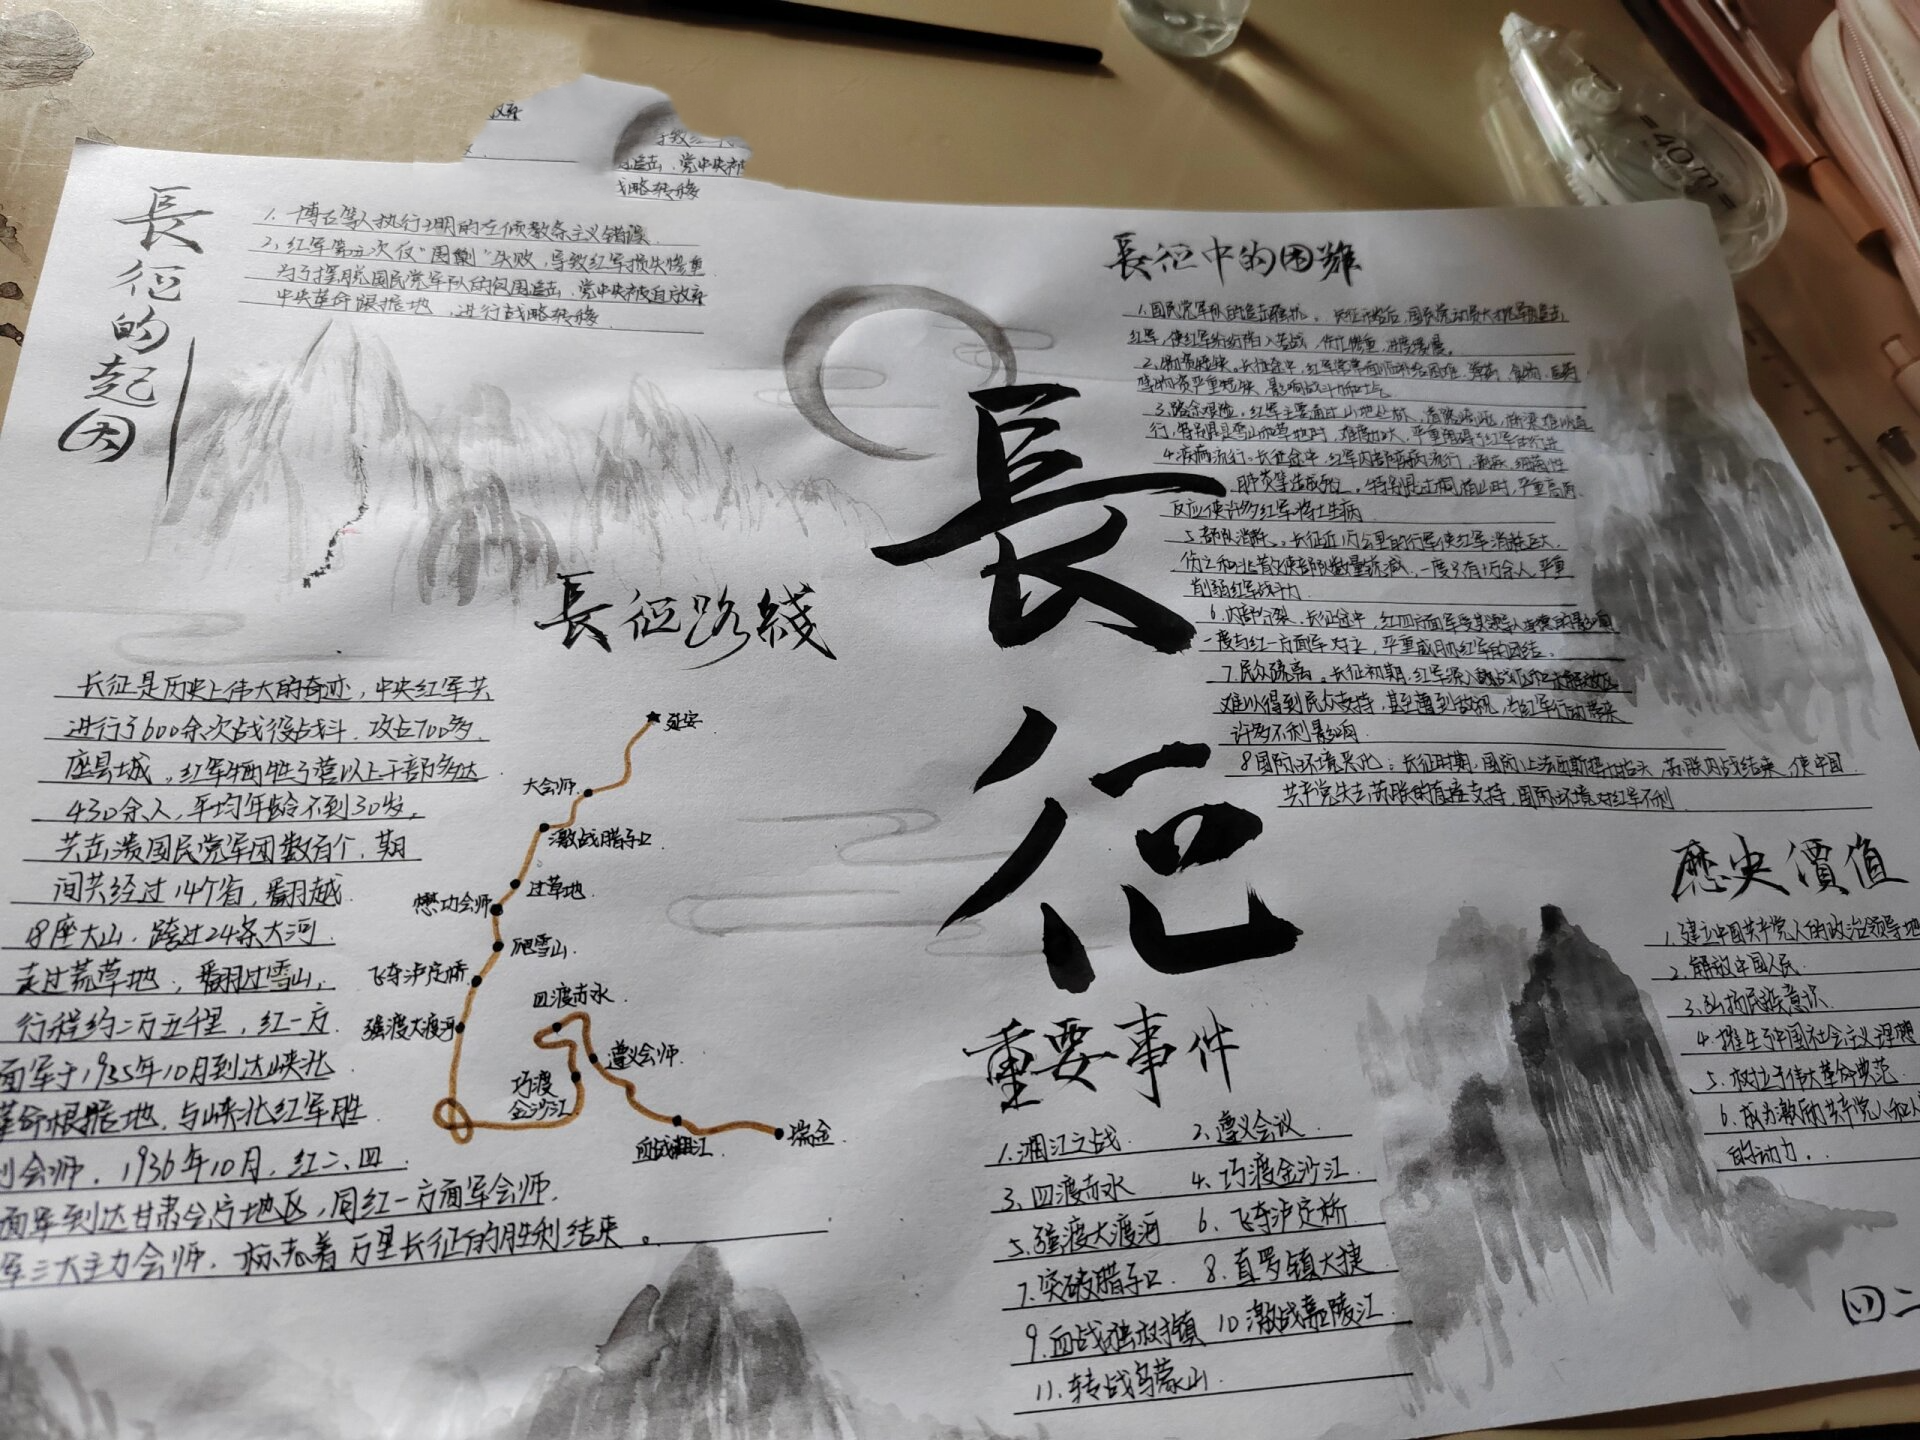 長征的起因
1. 博古等人执行王明的左倾教条主义错误.
2. 红军第五次反"围剿"失败,导致红军损失惨重
为了摆脱国民党军队的包围追击.党中央被自放弃
中央革命跟据地,进行战略转移.
追击.党中央被
战略转移
長征路綫
长征是历史上伟大的奇迹,中央红军共
进行了600余次战役战斗.攻占700多.
座县城.红军牺牲了营以上干部多达
430余人,平均年龄不到30岁.
共击溃国民党军团数百个.期
间共经过14个省,翻越.
18座大山.跨过24条大河.
走过荒草地,翻过雪山,
行程约二万五千里,红一方.
面军于1935年10月到达峡北
革命根据地,与峡北红军胜.
利会师.1936年10月,红二、四
面军到达甘肃会宁地区,同红一方面军会师.
军三大主力会师.标志着万里长征的胜利结束。
延安
大会师.
激战腊子口
过草地.
懋功会师
爬雪山.
飞夺泸定桥
强渡大渡河
四渡赤水.
遵义会师.
巧渡
金沙江
血战湘江.
瑞金.
長征
長征中的困難
1.国民党军队的追击骚扰。长征开始后,国民党动员大批军队追击
红军,使红军纷纷陷入苦战,伤亡惨重,进度缓慢。
2.物资短缺。长征途中,红军常常面临补给困难,弹药、食物、医药
等物资严重短缺,影响战斗力和士气
3.路余艰险.红军主要通过山地丛林,道路崎岖,桥梁难以通
行,特别是雪山和草地时,难度加大,严重阻碍了红军的行进
4.疾病流行.长征途中,红军内部疾病流行,疟疾、细菌性
肺炎等造成死亡。特别是过雪山时,严重高原
反应使许多红军将士生病.
5.部队消耗.长征近1万公里的行军使红军消耗巨大.
伤亡和北首次使部队数量锐减,一度只有1万余人,严重
削弱红军战斗力.
6.内部分裂.长征途中,红四方面军受其领导人的影响
一度与红一方面军对立,严重威胁红军的团结.
7.民众疏离.长征初期,红军深入敌战区和未解放区
难以得到民众支持,甚至遭到敌视,当红军行动带来
许多不利影响.
8国际环境恶化:长征时期,国际上法西斯势力抬头,苏联内战结束,使中国
共产党失去苏联的直接支持,国际环境对红军不利
歷史價值
1.建立中国共产党人的政治领导地
2.解放中国人民.
3.弘扬民族意识.
4.催生了中国社会主义理想
5.树立了伟大革命典范.
6.成为激励共产党人和人
的动力..
重要事件
1.湘江之战. 2.遵义会议.
3.四渡赤水 4.巧渡金沙江.
5.强渡大渡河 6.飞夺泸定桥
7.突破腊子口. 8.直罗镇大捷.
9.血战独树镇 10激战嘉陵江.
11.转战乌蒙山.
四二
40m